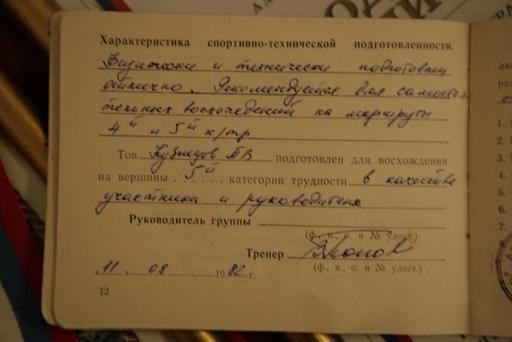 Характеристика спортивно-технической подготовленности.
Физически и технически подготовлен
отлично. Рекомендуется для самостоя-
тельных восхождений на маршруты
4й и 5й к/тр
Тов. Кузнецов подготовлен для восхождения
на вершины 5й категории трудности в качестве
участника и руководителя
Руководитель группы
(ф., и., о. и № удост.)
Тренер
(ф., и., о. и № удост.)
11. 08 1982 г.
12